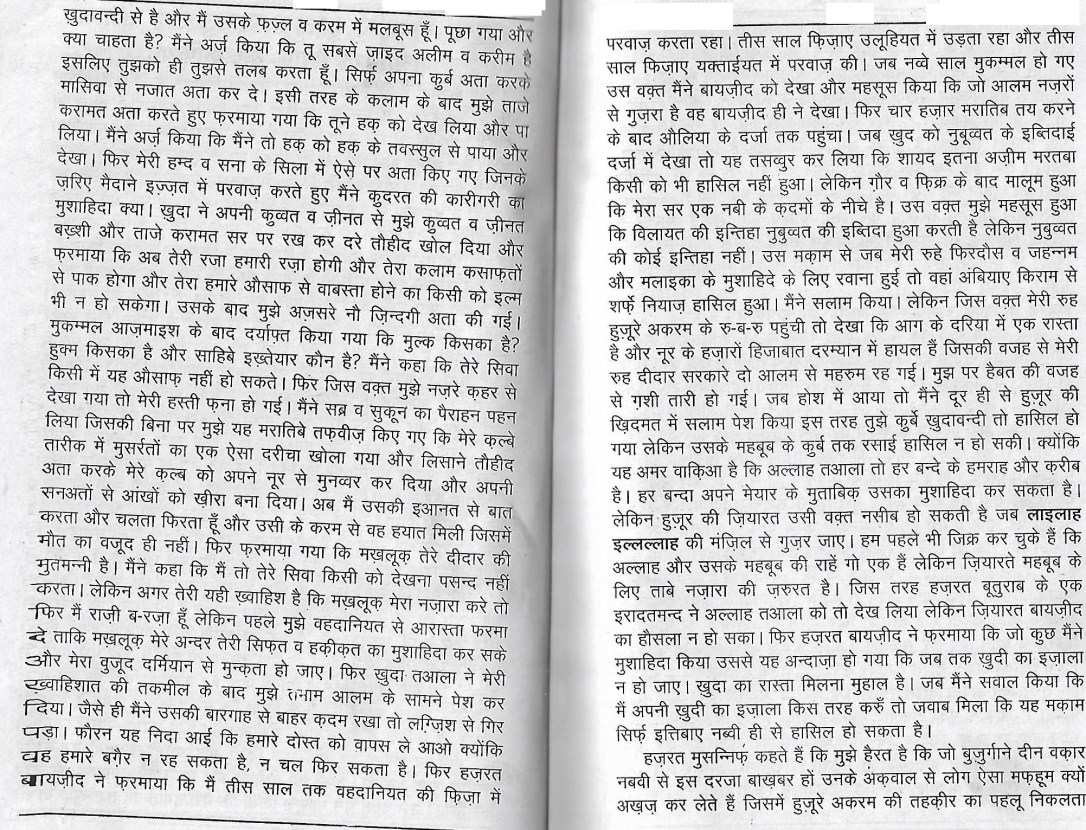 खुदावन्दी से है और मैं उसके फ़ज़्ल व करम में मलबूस हूँ। पूछा गया और
क्या चाहता है? मैंने अर्ज़ किया कि तू सबसें ज़ाइद अलीम व करीम है
इसलिए तुझको ही तुझसे तलब करता हूँ। सिर्फ़ अपना कुर्ब अता करके
मासिवा से नजात अता कर दे। इसी तरह के कलाम के बाद मुझे ताजे
करामत अता करते हुए फ़रमाया गया कि तूने हक़ को देख लिया और पा
लिया। मैंने अर्ज़ किया कि मैंने तो हक़ को हक़ के तवस्सुल से पाया और
देखा। फिर मेरी हम्द व सना के सिला में ऐसे पर अता किए गए जिनके
ज़रिए मैदाने इज़्ज़त में परवाज़ करते हुए मैंने कुदरत की कारीगरी का
मुशाहिदा क्या। ख़ुदा ने अपनी कुव्वत व ज़ीनत से मुझे कुव्वत व ज़ीनत
बख़्शी और ताजे करामत सर पर रख कर दरे तौहीद खोल दिया और
फ़रमाया कि अब तेरी रजा हमारी रज़ा होगी और तेरा कलाम कसाफ़तों
से पाक होगा और तेरा हमारे औसाफ़ से वाबस्ता होने का किसी को इल्म
भी न हो सकेगा। उसके बाद मुझे अज़सरे नौ ज़िन्दगी अता की गई।
मुकम्मल आज़माइश के बाद दर्याफ़्त किया गया कि मुल्क किसका है?
हुक्म किसका है और साहिबे इख़्तेयार कौन है? मैंने कहा कि तेरे सिवा
किसी में यह औसाफ़ नहीं हो सकते। फिर जिस वक़्त मुझे नज़रे क़हर से
देखा गया तो मेरी हस्ती फ़ना हो गई। मैंने सब्र व सुकून का पैराहन पहन
लिया जिसकी बिना पर मुझे यह मरातिबे तफ़वीज़ किए गए कि मेरे क़ल्बे
तारीक में मुसर्रतों का एक ऐसा दरीचा खोला गया और लिसाने तौहीद
अता करके मेरे क़ल्ब को अपने नूर से मुनव्वर कर दिया और अपनी
सनअतों से आंखों को ख़ीरा बना दिया। अब मैं उसकी इआनत से बात
करता और चलता फिरता हूँ और उसी के करम से वह हयात मिली जिसमें
मौत का वजूद ही नहीं। फिर फ़रमाया गया कि मख़लूक़ तेरे दीदार की
मुतमन्नी है। मैंने कहा कि मैं तो तेरे सिवा किसी को देखना पसन्द नहीं
करता। लेकिन अगर तेरी यही ख़्वाहिश है कि मख़लूक़ मेरा नज़ारा करे तो
फिर मैं राज़ी ब-रज़ा हूँ लेकिन पहले मुझे वहदानियत से आरास्ता फ़रमा
दे ताकि मख़लूक़ मेरे अन्दर तेरी सिफ़त व हक़ीक़त का मुशाहिदा कर सके
और मेरा वुजूद दर्मियान से मुन्क़ता हो जाए। फिर ख़ुदा तआला ने मेरी
ख़्वाहिशात की तकमील के बाद मुझे तमाम आलम के सामने पेश कर
दिया। जैसे ही मैंने उसकी बारगाह से बाहर क़दम रखा तो लग़्ज़िश से गिर
पड़ा। फौरन यह निदा आई कि हमारे दोस्त को वापस ले आओ क्योंकि
वह हमारे बग़ैर न रह सकता है, न चल फिर सकता है। फिर हज़रत
बायज़ीद ने फ़रमाया कि मैं तीस साल तक वहदानियत की फ़िज़ा में
परवाज़ करता रहा। तीस साल फ़िज़ाए उलूहियत में उड़ता रहा और तीस
साल फ़िज़ाए यक्ताईयत में परवाज़ की। जब नव्वे साल मुकम्मल हो गए
उस वक़्त मैंने बायज़ीद को देखा और महसूस किया कि जो आलम नज़रों
से गुज़रा है वह बायज़ीद ही ने देखा। फिर चार हज़ार मरातिब तय करने
के बाद औलिया के दर्जा तक पहुंचा। जब ख़ुद को नुबूव्वत के इब्तिदाई
दर्जा में देखा तो यह तसव्वुर कर लिया कि शायद इतना अज़ीम मरतबा
किसी को भी हासिल नहीं हुआ। लेकिन ग़ौर व फ़िक्र के बाद मालूम हुआ
कि मेरा सर एक नबी के क़दमों के नीचे है। उस वक़्त मुझे महसूस हुआ
कि विलायत की इन्तिहा नुबुव्वत की इब्तिदा हुआ करती है लेकिन नुबुव्वत
की कोई इन्तिहा नहीं। उस मक़ाम से जब मेरी रुहे फिरदौस व जहन्नम
और मलाइका के मुशाहिदे के लिए रवाना हुई तो वहां अंबियाए किराम से
शर्फ़े नियाज़ हासिल हुआ। मैंने सलाम किया। लेकिन जिस वक़्त मेरी रुह
हुज़ूरे अकरम के रु-ब-रु पहुंची तो देखा कि आग के दरिया में एक रास्ता
है और नूर के हज़ारों हिजाबात दरम्यान में हायल हैं जिसकी वजह से मेरी
रुह दीदार सरकारे दो आलम से महरुम रह गई। मुझ पर हैबत की वजह
से ग़शी तारी हो गई। जब होश में आया तो मैंने दूर ही से हुज़ूर की
ख़िदमत में सलाम पेश किया इस तरह तुझे कुर्बे खुदावन्दी तो हासिल हो
गया लेकिन उसके महबूब के कुर्ब तक रसाई हासिल न हो सकी। क्योंकि
यह अमर वाक़िआ है कि अल्लाह तआला तो हर बन्दे के हमराह और क़रीब
है। हर बन्दा अपने मेयार के मुताबिक़ उसका मुशाहिदा कर सकता है।
लेकिन हुज़ूर की ज़ियारत उसी वक़्त नसीब हो सकती है जब लाइलाह
इल्लल्लाह की मंज़िल से गुज़र जाए। हम पहले भी जिक्र कर चुके हैं कि
अल्लाह और उसके महबूब की राहें गो एक हैं लेकिन ज़ियारते महबूब के
लिए ताबे नज़ारा की ज़रुरत है। जिस तरह हज़रत बूतुराब के एक
इरादतमन्द ने अल्लाह तआला को तो देख लिया लेकिन ज़ियारत बायज़ीद
का हौसला न हो सका। फिर हज़रत बायज़ीद ने फ़रमाया कि जो कुछ मैंने
मुशाहिदा किया उससे यह अन्दाज़ा हो गया कि जब तक खुदी का इज़ाला
न हो जाए। खुदा का रास्ता मिलना मुहाल है। जब मैंने सवाल किया कि
मैं अपनी खुदी का इज़ाला किस तरह करुँ तो जवाब मिला कि यह मक़ाम
सिर्फ़ इत्तिबाए नब्वी ही से हासिल हो सकता है।
हज़रत मुसन्निफ़ कहते हैं कि मुझे हैरत है कि जो बुजुर्गाने दीन वक़ार
नबवी से इस दरजा बाख़बर हों उनके अक़वाल से लोग ऐसा मफ़हूम क्यों
अख़ज़ कर लेते हैं जिसमें हुज़ूरे अकरम की तहक़ीर का पहलू निकलता